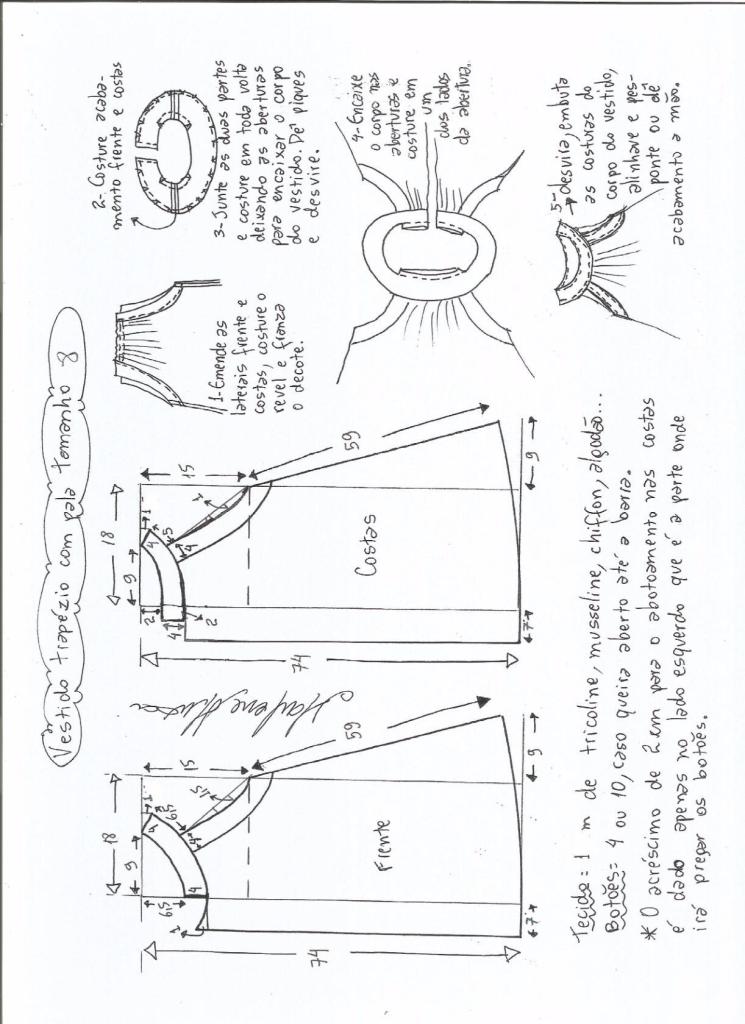 Vestido trapézio com pala tamanho 8
18
9
1
15
6,5
4
6,5
1,5
4
4
1
59
74
Frente
7
9
Marlene Mukai
18
9
1
15
2
4
5
1
4
4
2
59
74
Costas
7
9
1-Emende as
laterais frente e
costas, costure o
revel e franza
o decote.
2- Costure acaba-
mento frente e costas
3-Junte as duas partes
e costure em toda volta
deixando as aberturas
para encaixar o corpo
do vestido. Dê piques
e desvire.
4-Encaixe
o corpo nas
aberturas e
costure em
um
dos lados
da abertura.
5-desvira, embuta
as costuras do
corpo do vestido,
alinhave e pes-
ponte ou dê
acabamento a mão.
Tecido = 1 m de tricoline, musseline, chiffon, algodão...
Botões= 4 ou 10, caso queira aberto até a barra.
* O acréscimo de 2 cm para o abotoamento nas costas
é dado apenas no lado esquerdo que é a parte onde
irá pregar os botões.